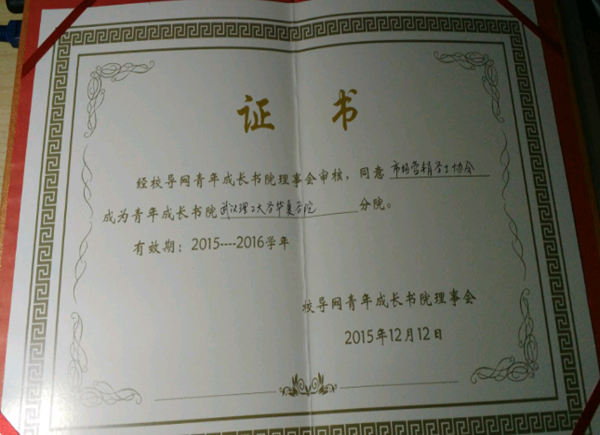 证书
经校导网青年成长书院理事会审核，同意 市场营销学士协会
成为青年成长书院 武汉理工大学华夏学院 分院。
有效期：2015----2016学年
校导网青年成长书院理事会
2015年12月12日